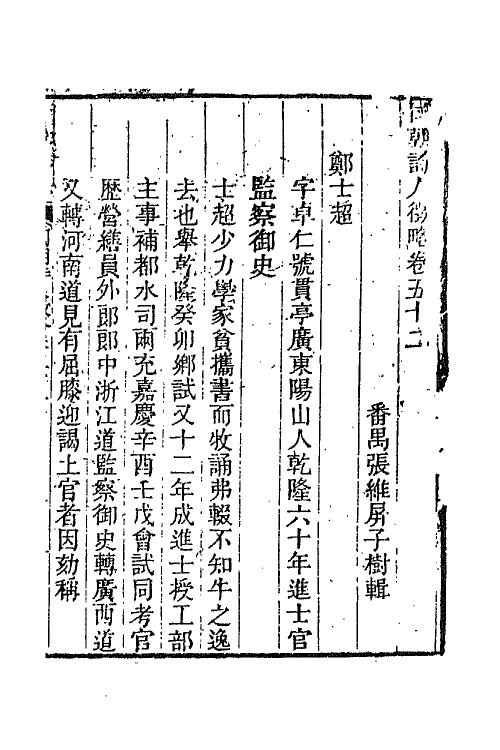 國朝詩人徵略卷五十二
番禺張維屏子樹輯
鄭士超
字卓仁號貫亭廣東陽山人乾隆六十年進士官
監察御史
士超少力學家貧攜書而牧誦弗輟不知牛之逸
去也舉乾隆癸卯鄉試又十二年成進士授工部
主事補都水司兩充嘉慶辛酉壬戌會試同考官
歷營繕員外郎郎中浙江道監察御史轉廣西道
又轉河南道見有屈膝迎謁上官者因劾稱